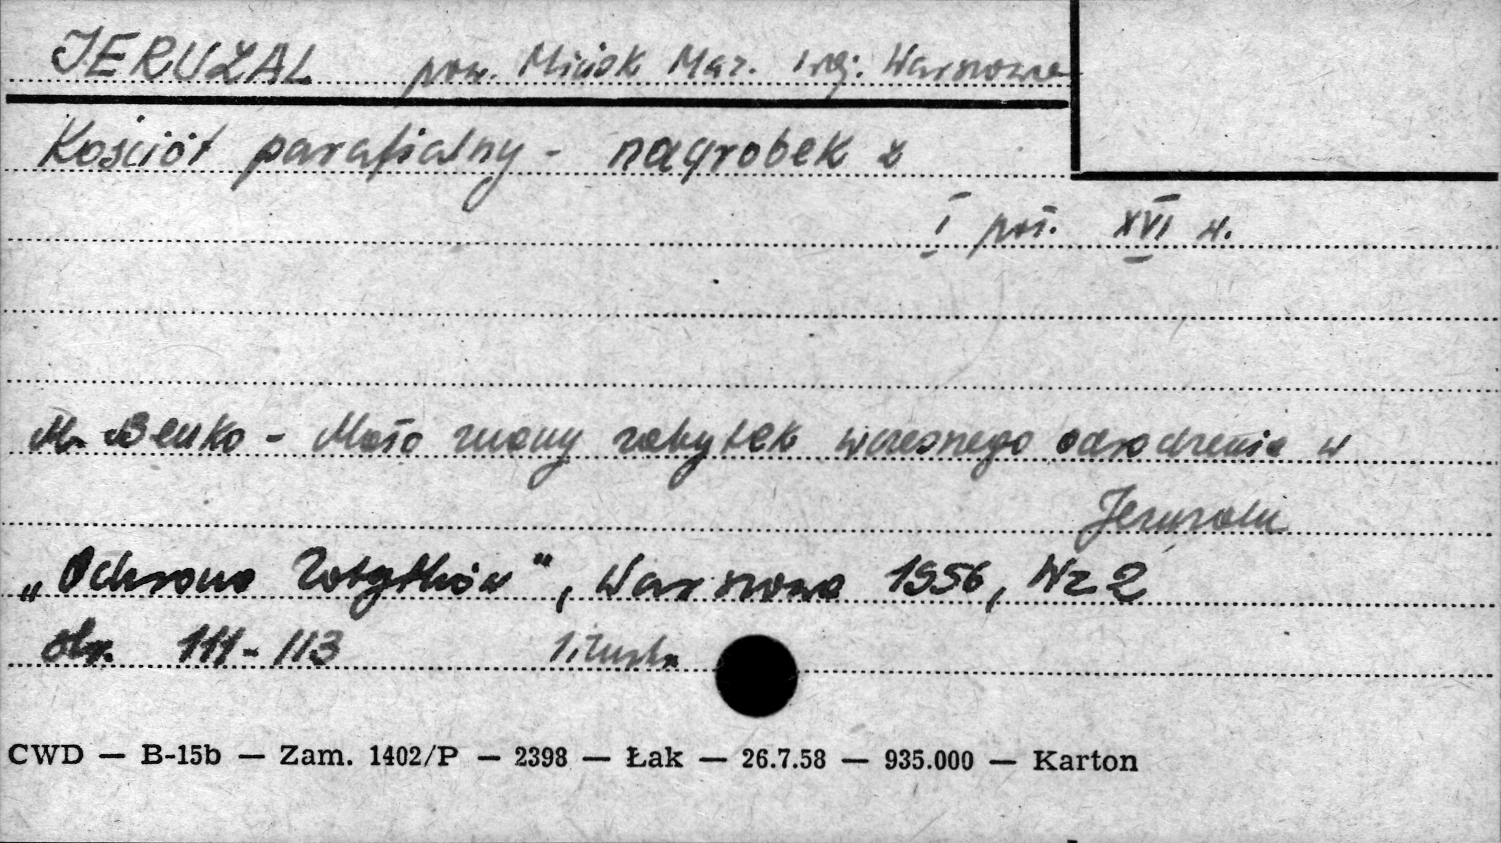 JERUZAL pow. Mińsk Maz. woj. Warszowa
Kościół parafialny - nagrobek z
I poł. XVI w.
M. Benko - Mało znany zabytek wczesnego odrodzenia w
Jeruzalu
„Ochrona Zabytków", Warszawa 1956, Nr 2
str. 111-113 1 ilustr.
CWD — B-15b — Zam. 1402/P — 2398 — Łak — 26.7.58 — 935.000 — Karton